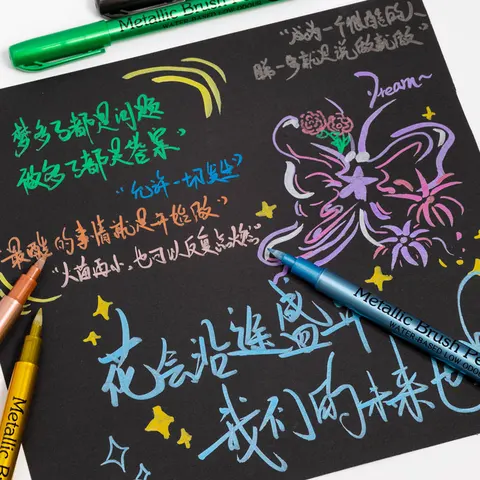 Metallic Brush Pen
"成为一个很酷的人
睇一身就是说做就做"
Dream~
梦多了都是问题
做多了都是答案"
"允许一切发生"
"最酷的事情就是开始做"
"火苗再小,也可以反复点燃"
花会沿途盛开
我们的未来也
Metallic Brush Pe
WATER-BASED LOW ODO
Metallic Brush
Metallic